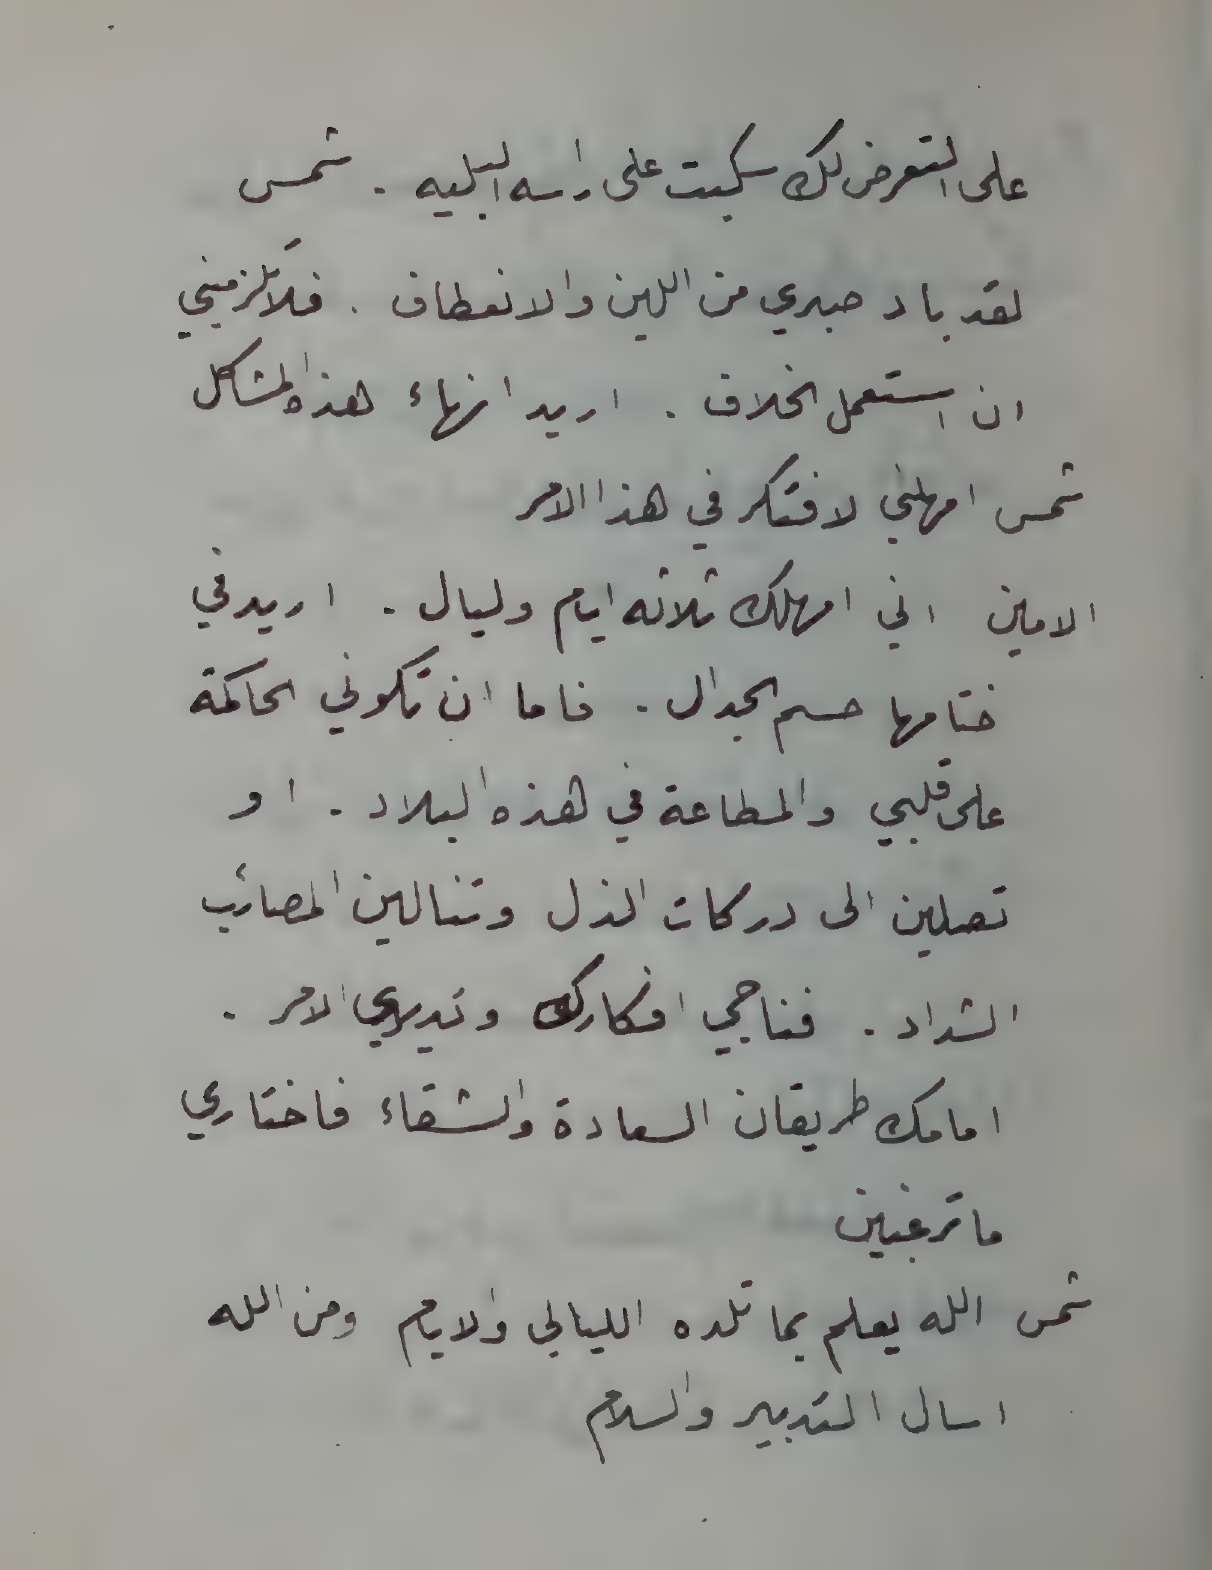 على التعرض لك سكبت على راسه البليه . شمس
لقد باد صبري من اللين والانعطاف . فلا تلزميني
ان استعمل الخلاف . اريد انهاء هذه المشاكل
شمس امهلني لافتكر في هذا الامر
الامين اني امهلك ثلاثه ايام وليال . اريد في
ختامها حسم الجدال . فاما ان تكوني الحاكمة
على قلبي والمطاعة في هذه البلاد . او
تصلين الى دركات الذل وتنالين المصائب
الشداد . فناجي افكارك وتدبري الامر .
امامك طريقان السعادة والشقاء فاختاري
ما ترغبين
شمس الله يعلم بما تلده الليالي والايام ومن الله
اسال التدبير والسلام